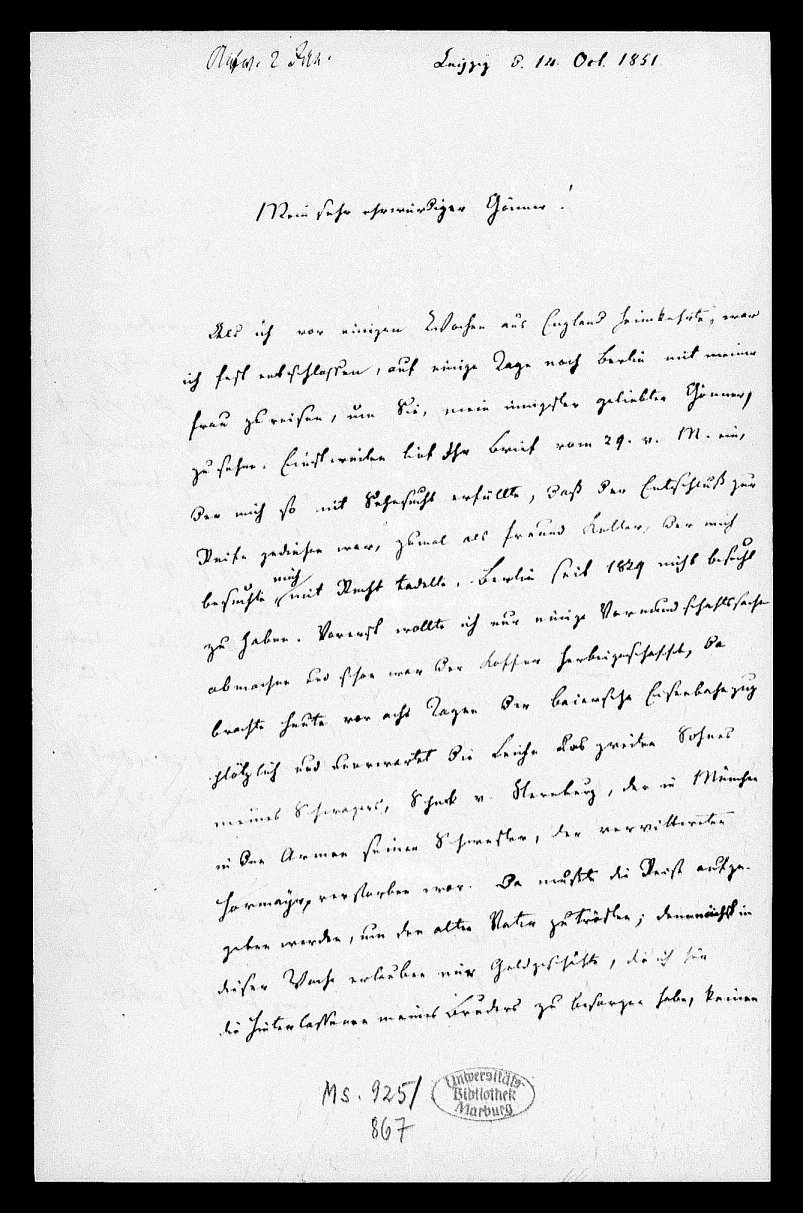 Leipzig d. 14. Oct. 1851
Mein sehr ehrwürdiger Gönner!
Als ich vor einigen Wochen aus England heimkehrte, war
ich fest entschlossen, auf einige Tage nach Berlin mit meiner
Frau zu reisen, um Sie, mein innigster geliebter Gönner,
zu sehen. Einstweilen lief Ihr Brief vom 29. v. M. ein,
der mich so mit Sehnsucht erfüllte, daß der Entschluß zur
Reise gediehen war, zumal als Freund Keller, der mich
besuchte mich mit Recht tadelte, Berlin seit 1829 nicht besucht
zu haben. Vorerst wollte ich nur einige Vormundschaftssache
abmachen und schon war der Koffer herbeigeschafft, da
brachte heute vor acht Tagen der baiersche Eisenbahnzug
plötzlich und unerwartet die Leiche des zweiten Sohnes
meines Schwagers, Speck v. Sternburg, der in München
in den Armen seiner Schwester, der verwittweten
Hormayr, verstorben war. Da mußte die Reise aufge-
geben werden, um den alten Vater zu trösten; demnächst in
dieser Woche erlauben mir Geldgeschäfte, die ich für
die Hinterlassenen meines Bruders zu besorgen habe, keinen
Ms. 925/
867
Universitäts-
Bibliothek
Marburg